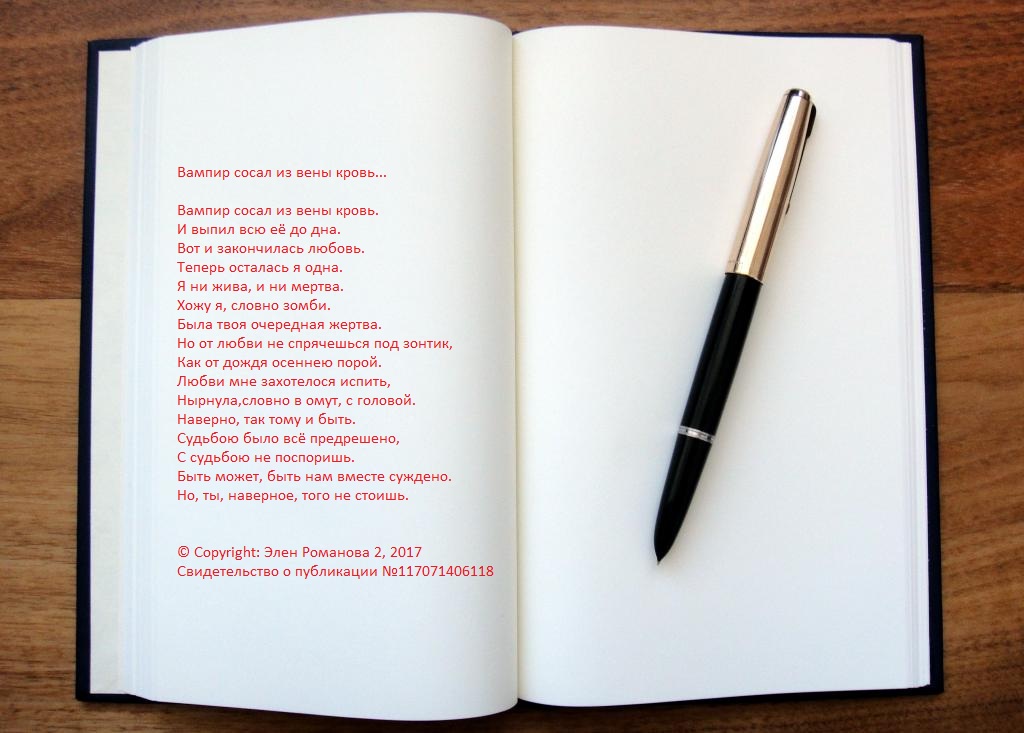 Вампир сосал из вены кровь...
Вампир сосал из вены кровь.
И выпил всю её до дна.
Вот и закончилась любовь.
Теперь осталась я одна.
Я ни жива, и ни мертва.
Хожу я, словно зомби.
Была твоя очередная жертва.
Но от любви не спрячешься под зонтик,
Как от дождя осеннею порой.
Любви мне захотелося испить,
Нырнула,словно в омут, с головой.
Наверно, так тому и быть.
Судьбою было всё предрешено,
С судьбою не поспоришь.
Быть может, быть нам вместе суждено.
Но, ты, наверное, того не стоишь.
© Copyright: Элен Романова 2, 2017
Свидетельство о публикации №117071406118